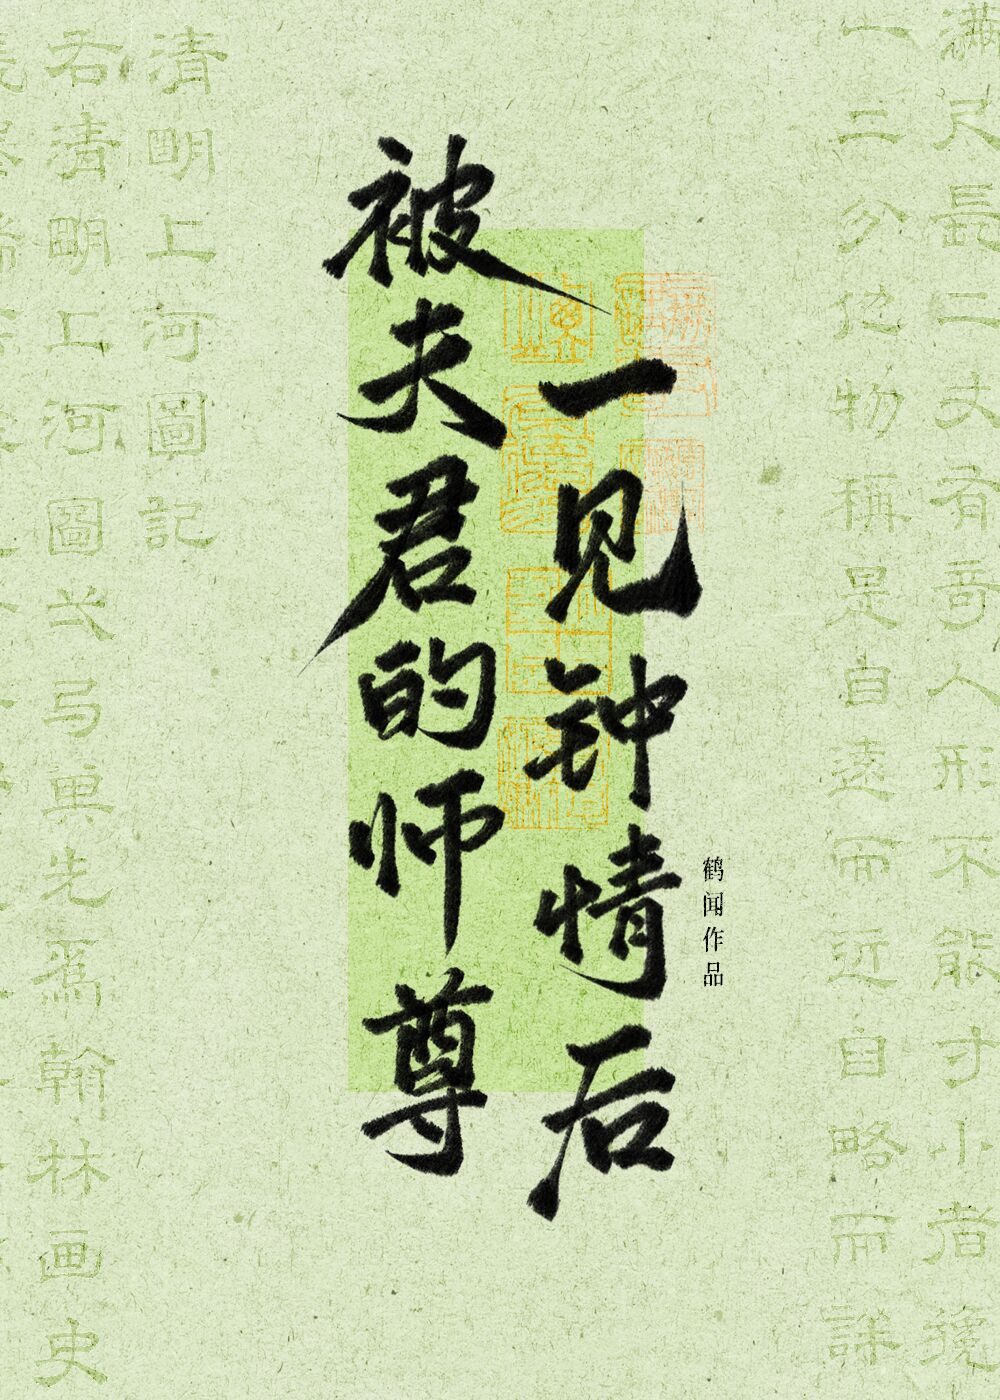 被夫君的师尊
一见钟情后
鹤闻作品
滿尺長二丈有奇人形不能寸小者纔
一二分他物稱是自遠而近自略而詳
清明上河圖記
右清明上河圖弌弓 先爲翰林画史